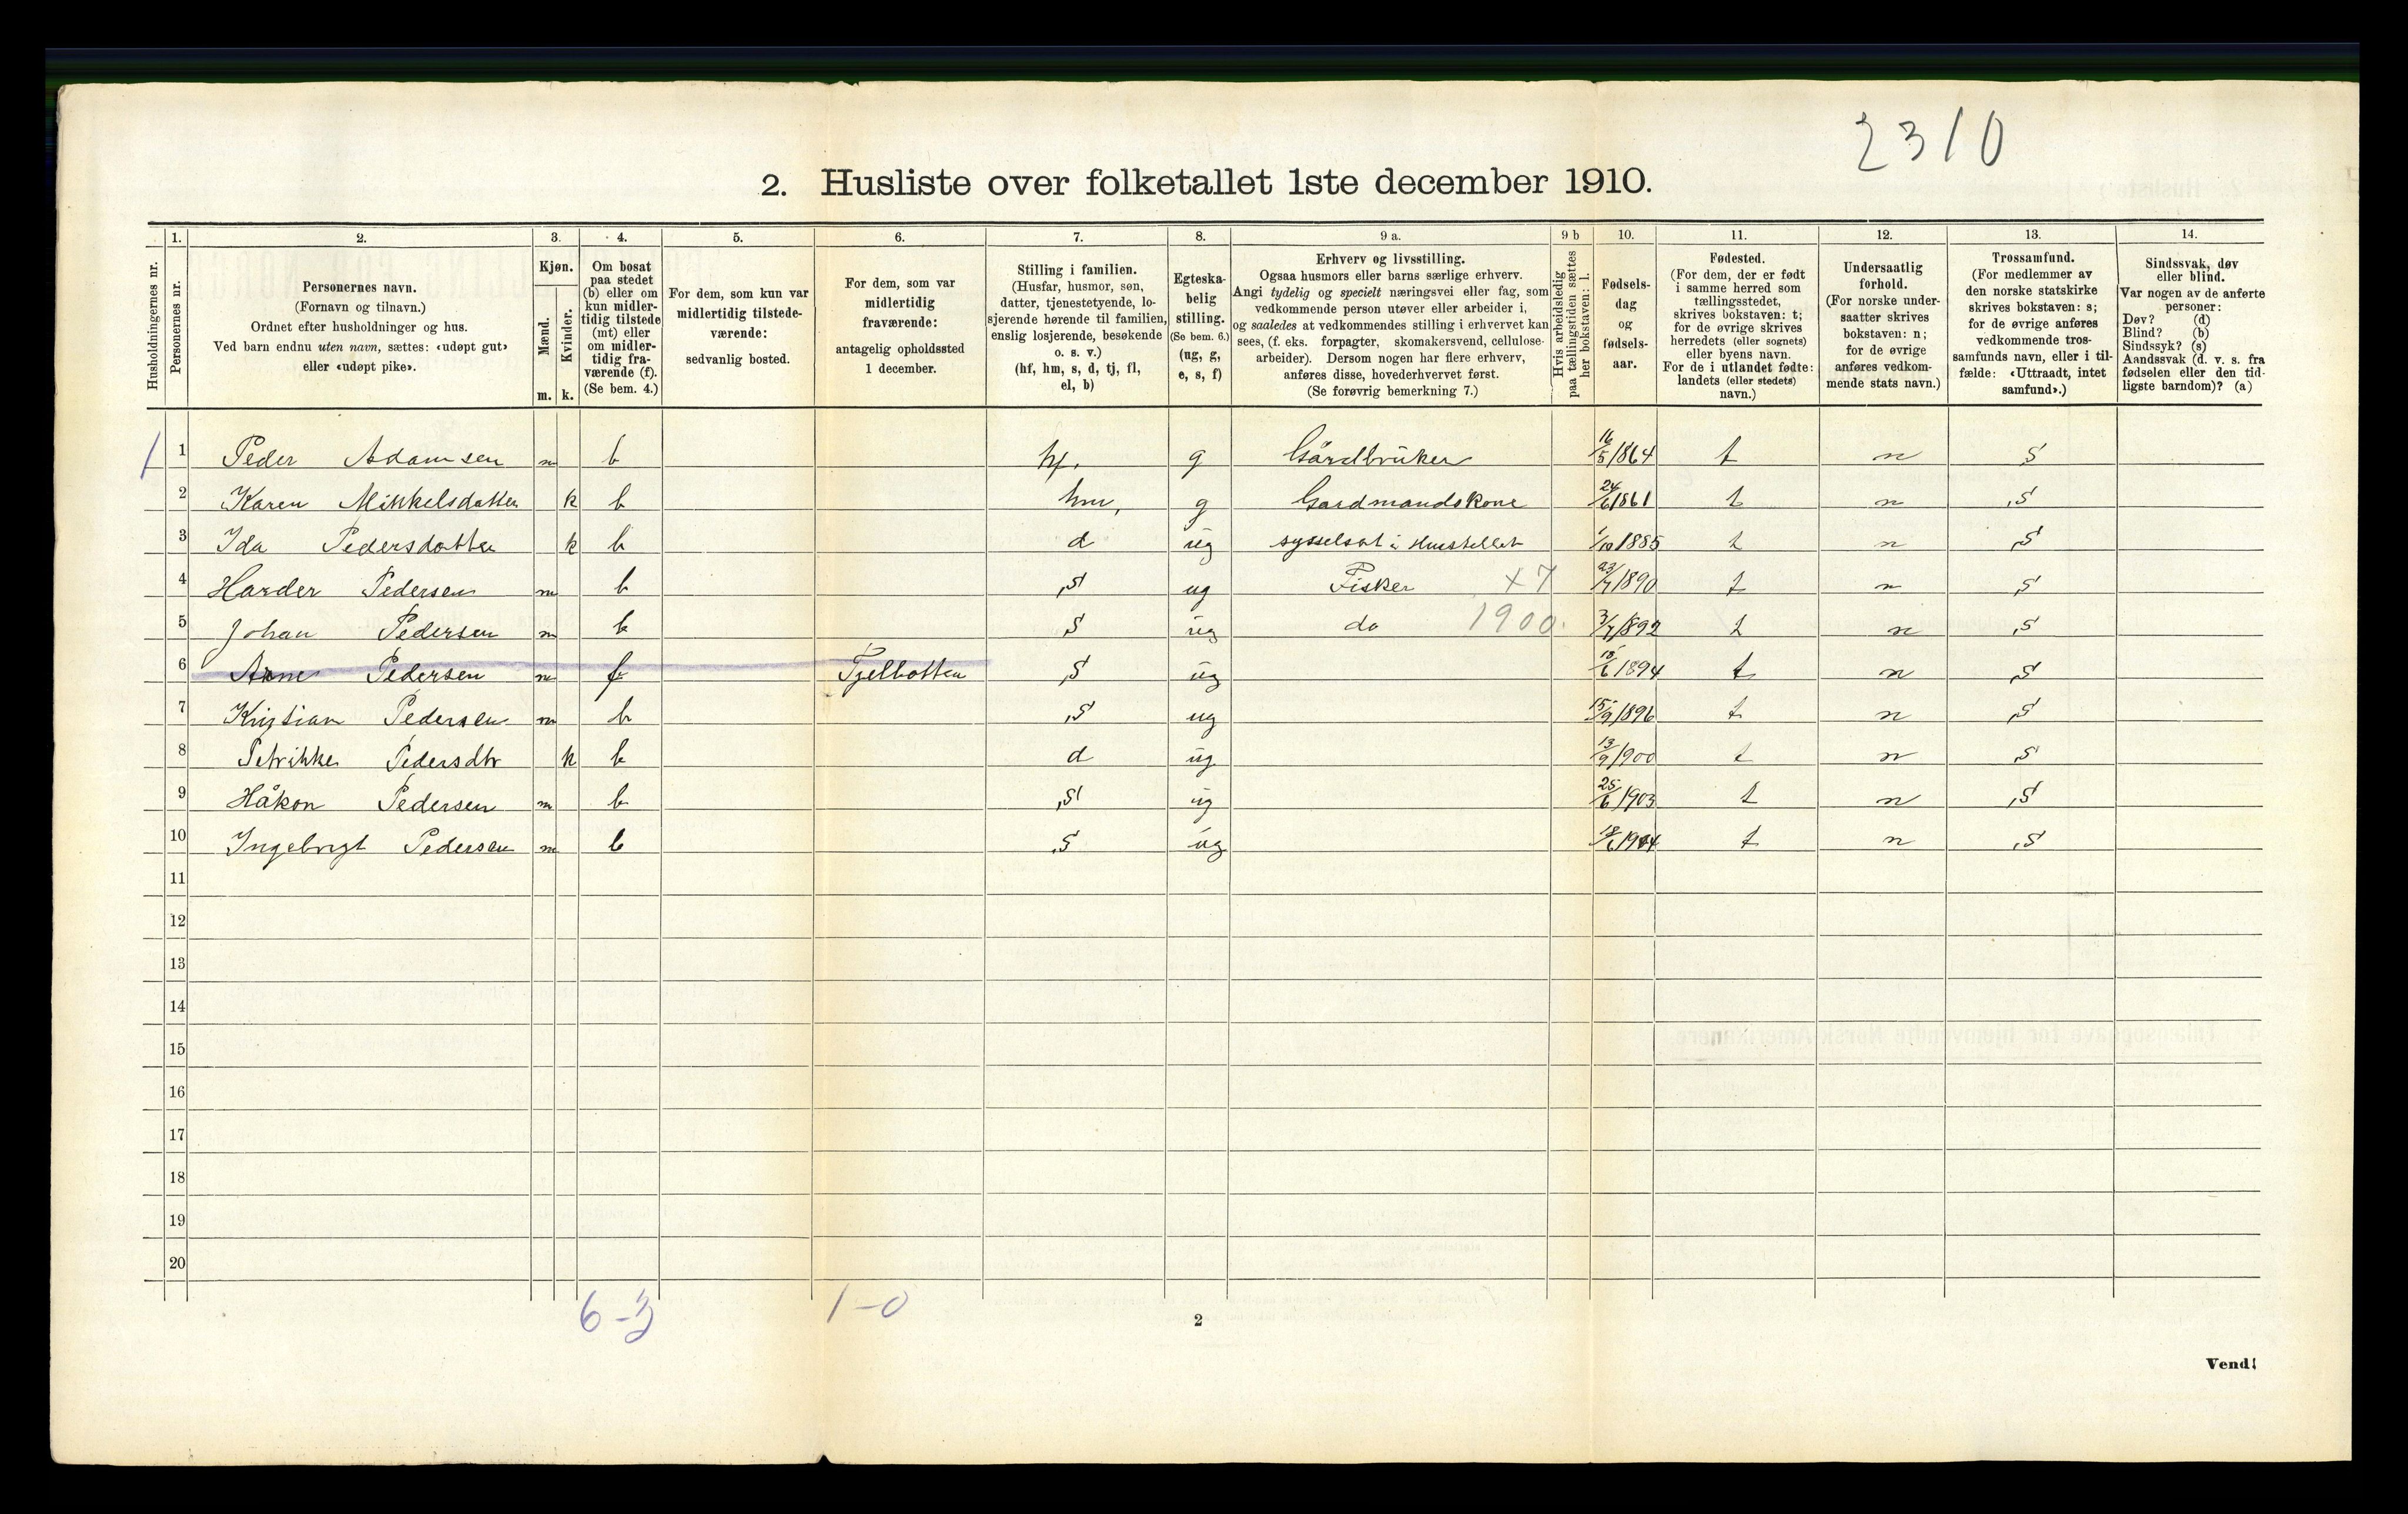 2310
2. Husliste over folketallet 1ste december 1910.
Husholdningernes nr.
1. Personernes nr.
2. Personernes navn. (Fornavn og tilnavn.) Ordnet efter husholdninger og hus. Ved barn endnu uten navn, sættes: «udøpt gut» eller «udøpt pike».
3. Kjøn. Mænd. m. Kvinder. k.
4. Om bosat paa stedet (b) eller om kun midlertidig tilstede (mt) eller om midlertidig fraværende (f). (Se bem. 4.)
5. For dem, som kun var midlertidig tilstedeværende: sedvanlig bosted.
6. For dem, som var midlertidig fraværende: antagelig opholdssted 1 december.
7. Stilling i familien. (Husfar, husmor, søn, datter, tjenestetyende, losjerende hørende til familien, enslig losjerende, besøkende o. s. v.) (hf, hm, s, d, tj, fl, el, b)
8. Egteskabelig stilling. (Se bem. 6.) (ug, g, e, s, f)
9 a. Erhverv og livsstilling. Ogsaa husmors eller barns særlige erhverv. Angi tydelig og specielt næringsvei eller fag, som vedkommende person utøver eller arbeider i, og saaledes at vedkommendes stilling i erhvervet kan sees, (f. eks. forpagter, skomakersvend, cellulosearbeider). Dersom nogen har flere erhverv, anføres disse, hovederhvervet først. (Se forøvrig bemerkning 7.)
9 b Hvis arbeidsledig paa tællingstiden sættes her bokstaven: l.
10. Fødselsdag og fødselsaar.
11. Fødested. (For dem, der er født i samme herred som tællingsstedet, skrives bokstaven: t; for de øvrige skrives herredets (eller sognets) eller byens navn. For de i utlandet fødte: landets (eller stedets) navn.)
12. Undersaatlig forhold. (For norske undersaatter skrives bokstaven: n; for de øvrige anføres vedkommende stats navn.)
13. Trossamfund. (For medlemmer av den norske statskirke skrives bokstaven: s; for de øvrige anføres vedkommende trossamfunds navn, eller i tilfælde: «Uttraadt, intet samfund».)
14. Sindssvak, døv eller blind. Var nogen av de anførte personer: Døv? (d) Blind? (b) Sindssyk? (s) Aandssvak (d. v. s. fra fødselen eller den tidligste barndom)? (a)
1 1 Peder Adamsen m b hf. g Gårdbruker 16/5 1864 t n S
2 Karen Mikkelsdatter k b hm, g Gardmandskone 24/6 1861 t n S
3 Ida Pedersdatter k b d ug sysselsat i Husstellet 1/10 1885 t n S
4 Harder Pedersen m b S ug Fisker x 7 23/7 1890 t n S
5 Johan Pedersen m b S ug do 1900. 3/7 1892 t n S
6 Arne Pedersen m f Fjelbotten S ug 18/6 1894 t n S
7 Kristian Pedersen m b S ug 15/9 1896 t n S
8 Petrikke Pedersdtr k b d ug 13/9 1900 t n S
9 Håkon Pedersen m b S ug 25/6 1903 t n S
10 Ingebrigt Pedersen m b S ug 18/6 1904 t n S
11
12
13
14
15
16
17
18
19
20
6-3 1-0
2
Vend!